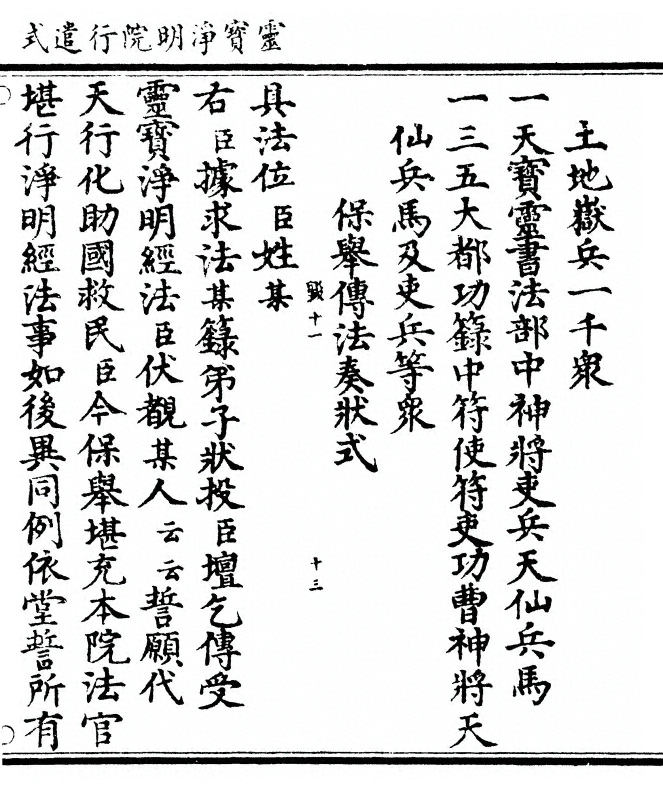 靈寶淨明院行遣式
土地嶽兵一千衆
一天寶靈書法部中神將吏兵天仙兵馬
一三五大都功籙中符使符吏功曹神將天
仙兵馬及吏兵等衆
保舉傳法奏狀式
十一
十三
具法位臣姓某
右臣據求法某籙弟子狀投臣壇乞傳受
靈寶淨明經法臣伏覩某人云云誓願代
天行化助國救民臣今保舉堪充本院法官
堪行淨明經法事如後異同例依堂誓所有